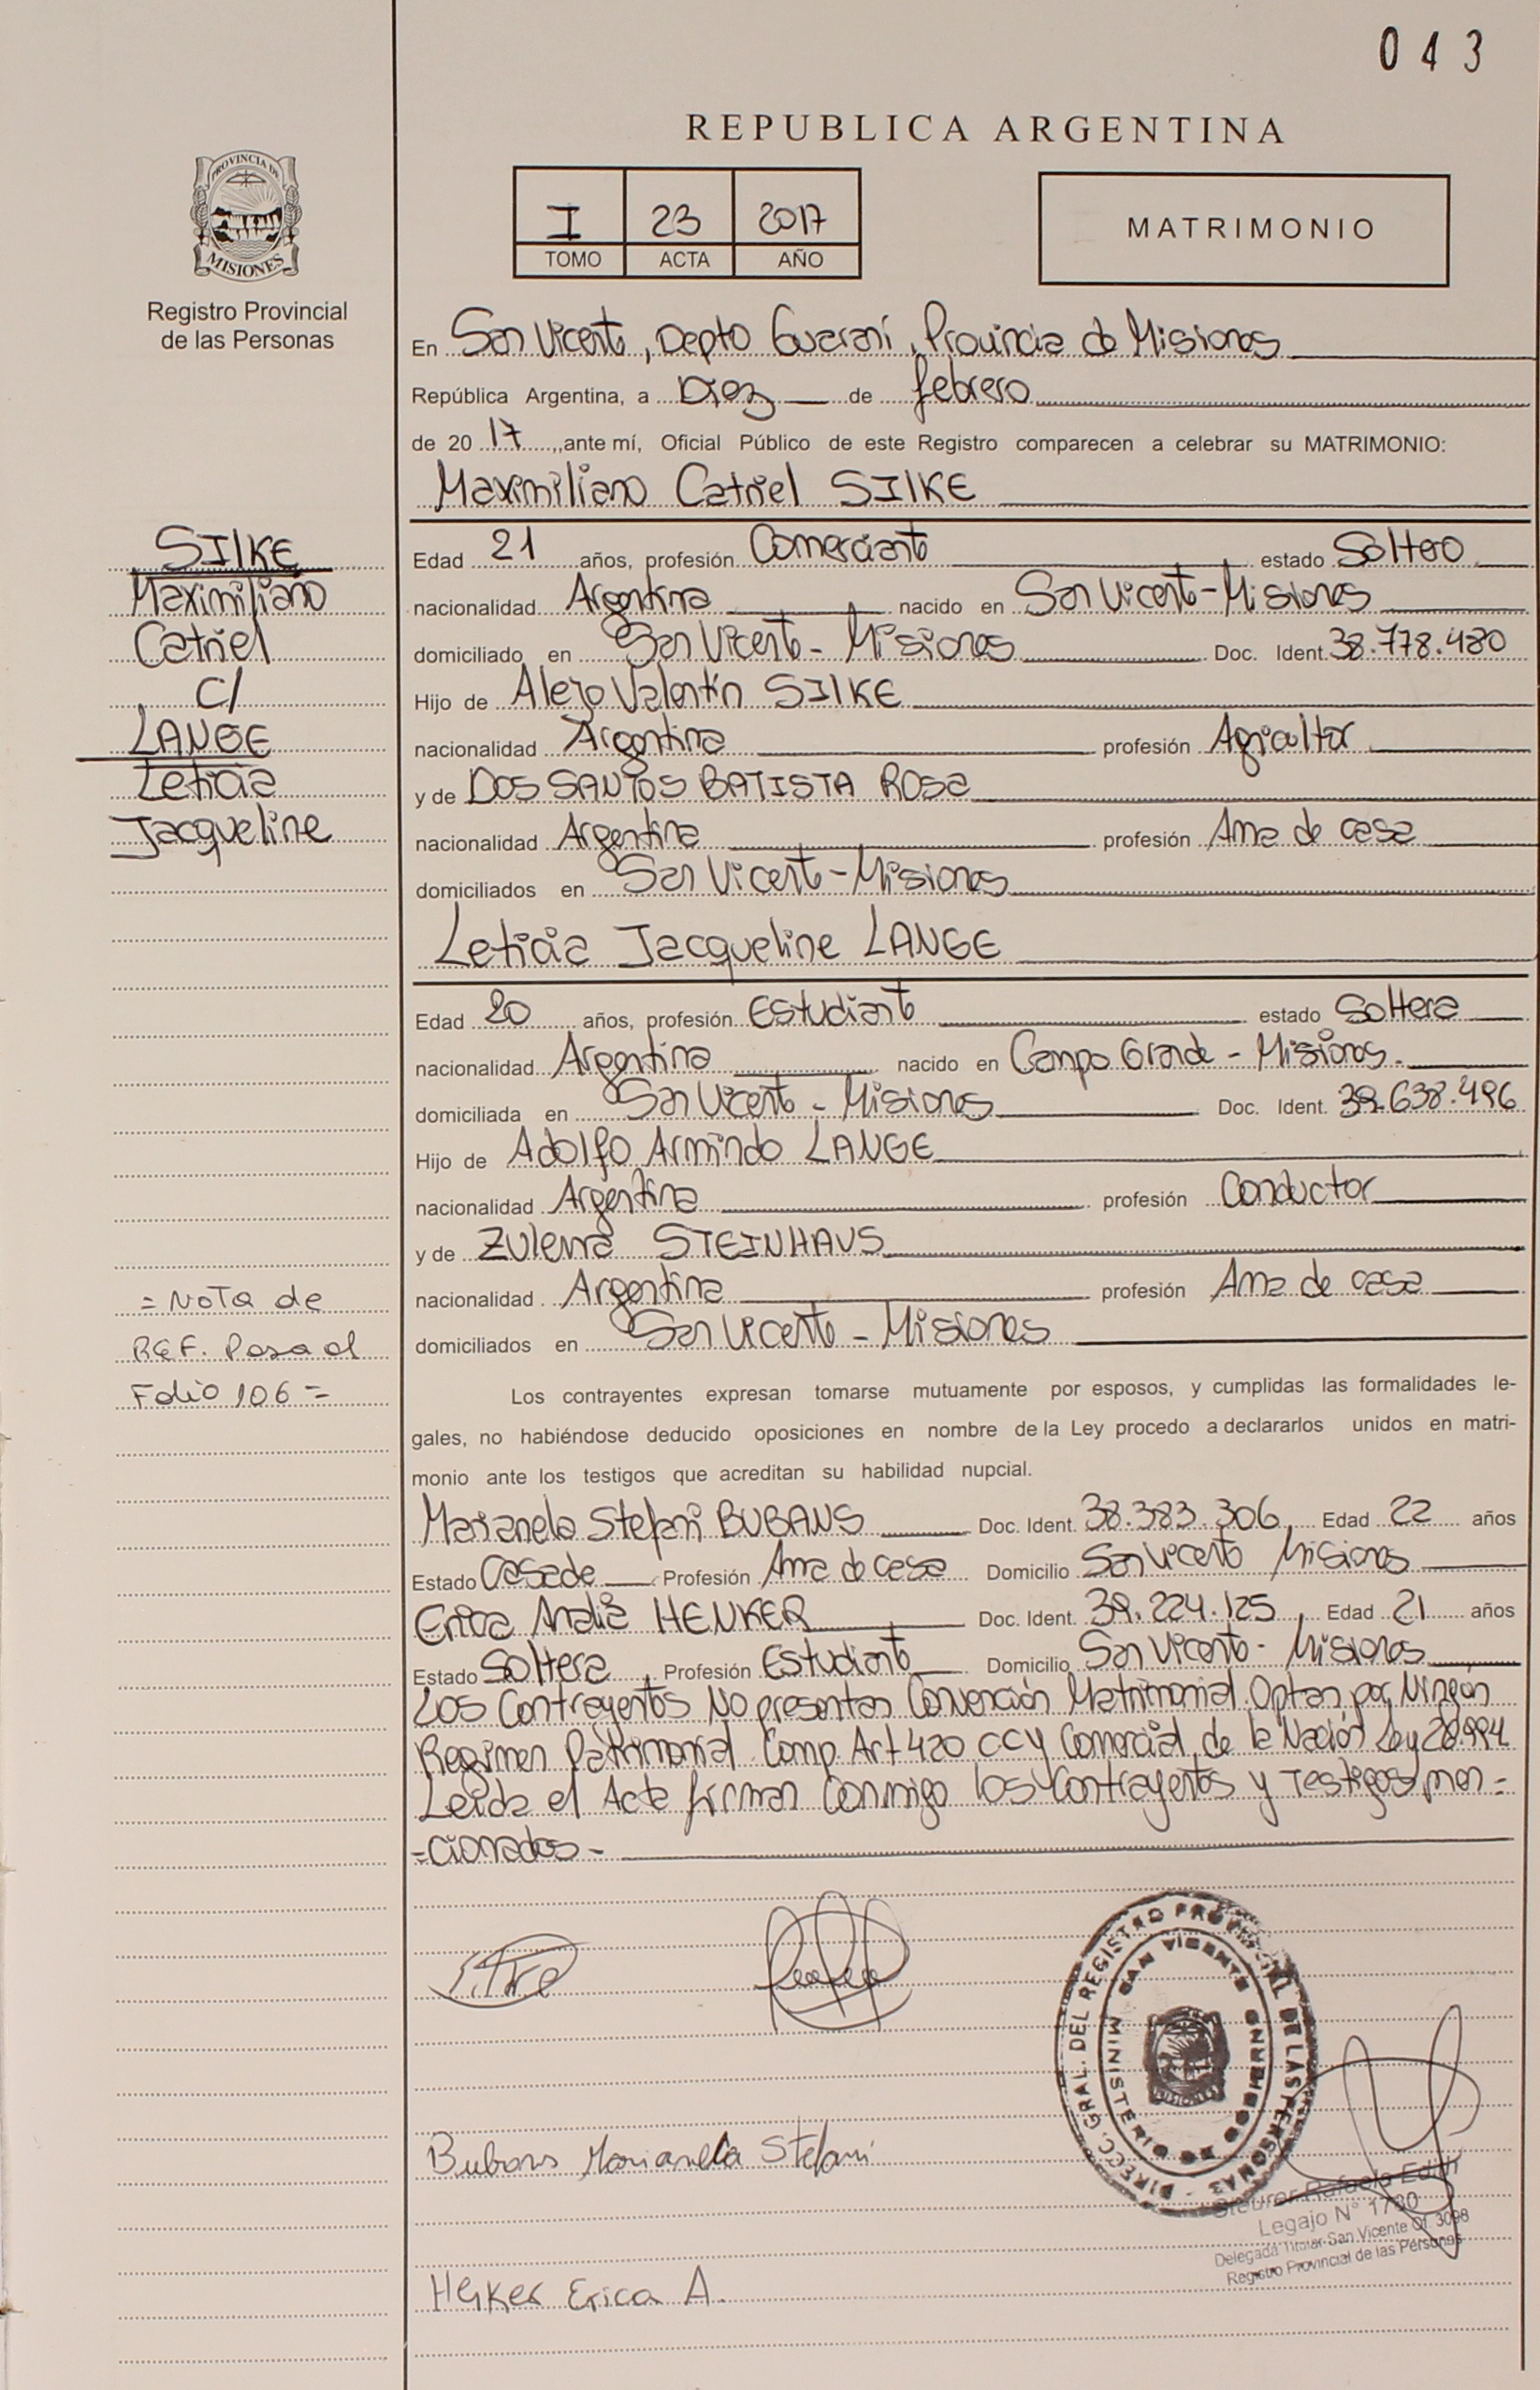 043
REPUBLICA ARGENTINA
PROVINCIA DE
MISIONES
Registro Provincial
de las Personas
I 23 2017
TOMO ACTA AÑO
MATRIMONIO
En San Vicente, Depto Guaraní, Provincia de Misiones
República Argentina, a Diez de febrero
de 2017, ante mí, Oficial Público de este Registro comparecen a celebrar su MATRIMONIO:
Maximiliano Catriel SILKE
SILKE
Maximiliano
Catriel
C/
LANGE
Leticia
Jacqueline
Edad 21 años, profesión Comerciante estado Soltero
nacionalidad Argentina nacido en San Vicente - Misiones
domiciliado en San Vicente - Misiones Doc. Ident. 38.778.480
Hijo de Alejo Valentín SILKE
nacionalidad Argentina profesión Agricultor
y de DOS SANTOS BATISTA ROSA
nacionalidad Argentina profesión Ama de casa
domiciliados en San Vicente - Misiones
Leticia Jacqueline LANGE
Edad 20 años, profesión Estudiante estado Soltera
nacionalidad Argentina nacido en Campo Grande - Misiones.
domiciliada en San Vicente - Misiones Doc. Ident. 39.638.496
Hijo de Adolfo Armindo LANGE
nacionalidad Argentina profesión Conductor
y de Zulema STEINHAUS
nacionalidad Argentina profesión Ama de casa
domiciliados en San Vicente - Misiones
= Nota de
REF. Pasa al
Folio 106 =
Los contrayentes expresan tomarse mutuamente por esposos, y cumplidas las formalidades le-
gales, no habiéndose deducido oposiciones en nombre de la Ley procedo a declararlos unidos en matri-
monio ante los testigos que acreditan su habilidad nupcial.
Marianela Stefani BUBANS Doc. Ident. 38.383.306, Edad 22 años
Estado Casada Profesión Ama de casa Domicilio San Vicente Misiones
Erica Analia HENKER Doc. Ident. 39.224.125, Edad 21 años
Estado Soltera, Profesión Estudiante Domicilio San Vicente - Misiones
Los Contrayentes No presentan Convención Matrimonial. Optan por Ningún
Regimen Patrimonial Comp. Art 420 CCy Comercial de la Nación Ley 26.994
Leida el Acta firman conmigo los Contrayentes y Testigos men=
=cionados -
DIRECC. GRAL. DEL REGISTRO PROVINCIAL DE LAS PERSONAS
MINISTERIO DE GOBIERNO
SAN VICENTE
MISIONES
Bubans Marianela Stefani
Steurer Rafaela Edith
Legajo N° 1730
Delegada Titular San Vicente Of. 3098
Registro Provincial de las Personas
Henker Erica A.